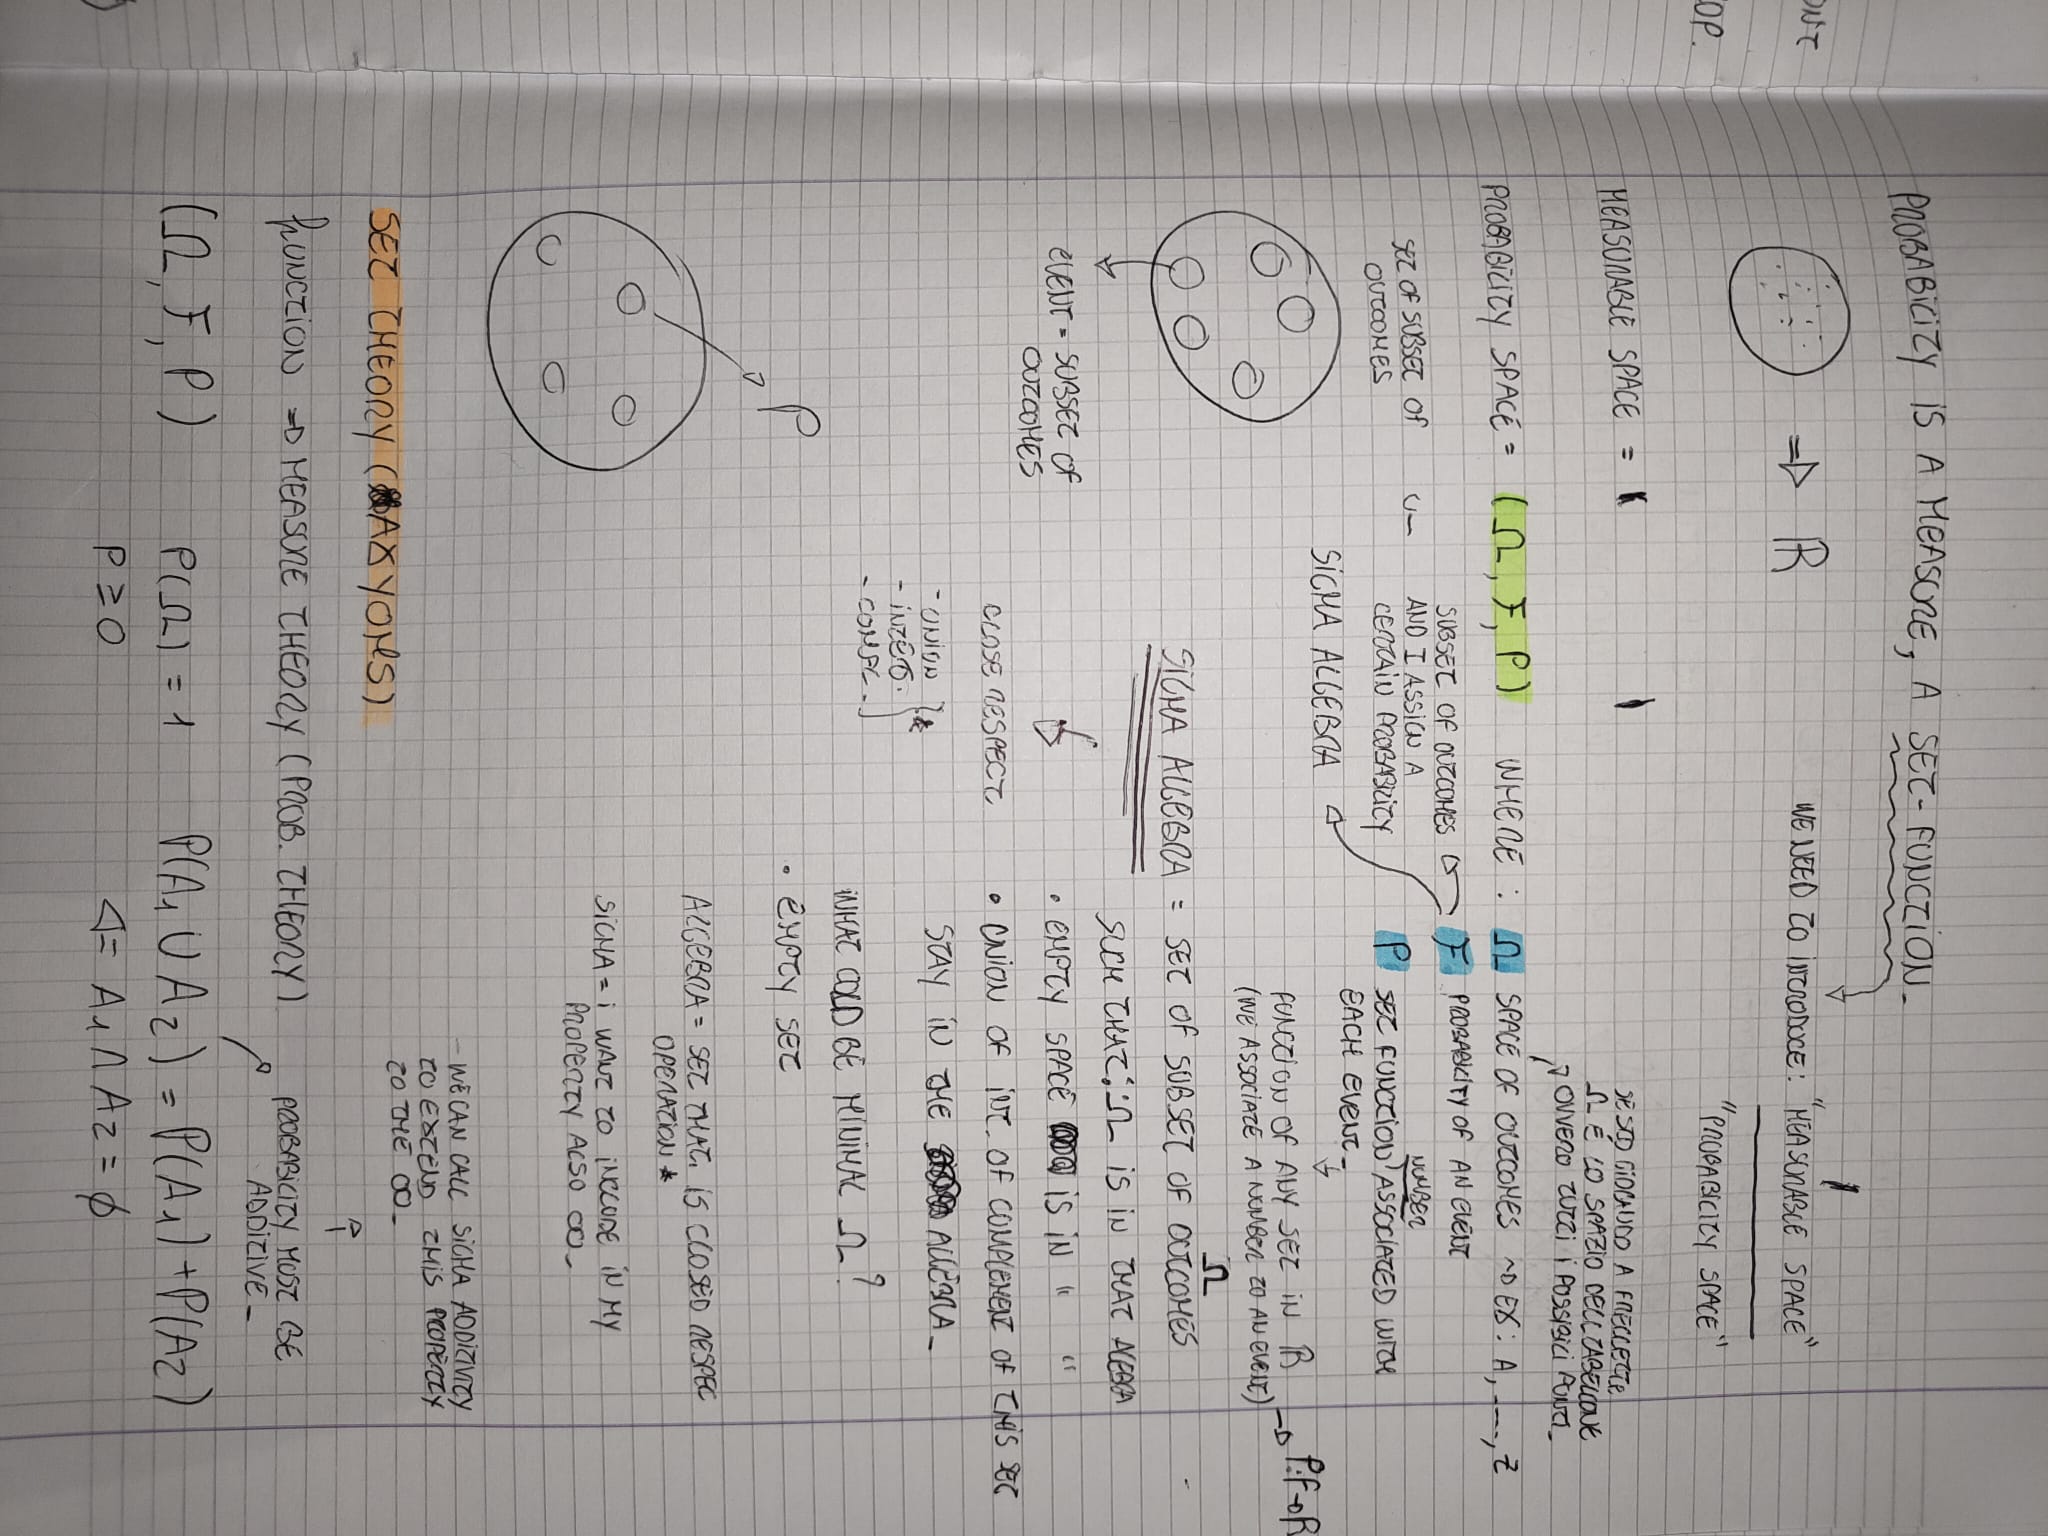 PROBABILITY IS A MEASURE, A SET-FUNCTION.
ONT
OP.
⇒ ℝ
WE NEED TO INTRODUCE: "MEASURABLE SPACE"
"PROBABILITY SPACE"
MEASURABLE SPACE =
SE STO GIOCANDO A FRECCETTE
Ω É LO SPAZIO DELL TABELLONE
OVVERO TUTTI I POSSIBILI PUNTI.
PROBABILITY SPACE = (Ω, F, P) WHERE : Ω SPACE OF OUTCOMES ~> EX: A, ...., Z
F PROBABILITY OF AN EVENT
SUBSET OF OUTCOMES
AND I ASSIGN A
CERTAIN PROBABILITY
SET OF SUBSET OF
OUTCOMES
NUMBER
P SET FUNCTION ASSOCIATED WITH
EACH EVENT.
SIGMA ALGEBRA
FUNCTION OF ANY SET IN ℝ → P:F→ℝ
(WE ASSOCIATE A NUMBER TO AN EVENT)
Ω
SIGMA ALGEBRA = SET OF SUBSET OF OUTCOMES
SUCH THAT: Ω IS IN THAT ALEBRA
• EMPTY SPACE IS IN " "
• UNION OF INT. OF COMPLEMENT OF THIS SET
STAY IN THE ALGEBRA.
EVENT = SUBSET OF
OUTCOMES
CLOSE RESPECT
- UNION
- INTER.
- COMPL.
} *
WHAT COLD BE MINIMAL Ω?
• EMPTY SET
P
ALGEBRA = SET THAT IS CLOSED RESPEC
OPERATION *
SIGMA = I WANT TO INCLUDE IN MY
PROPERTY ALSO ∞.
- WE CAN CALL SIGMA ADDITIVITY
TO EXTEND THIS PROPERTY
TO THE ∞.
SET THEORY (AXYOMS)
FUNCTION ⇒ MEASURE THEORY (PROB. THEORY)
PROBABILITY MUST BE
ADDITIVE.
(Ω, F, P) P(Ω) = 1 P(A1 ∪ A2) = P(A1) + P(A2)
P ≥ 0 ⇐ A1 ∩ A2 = ∅